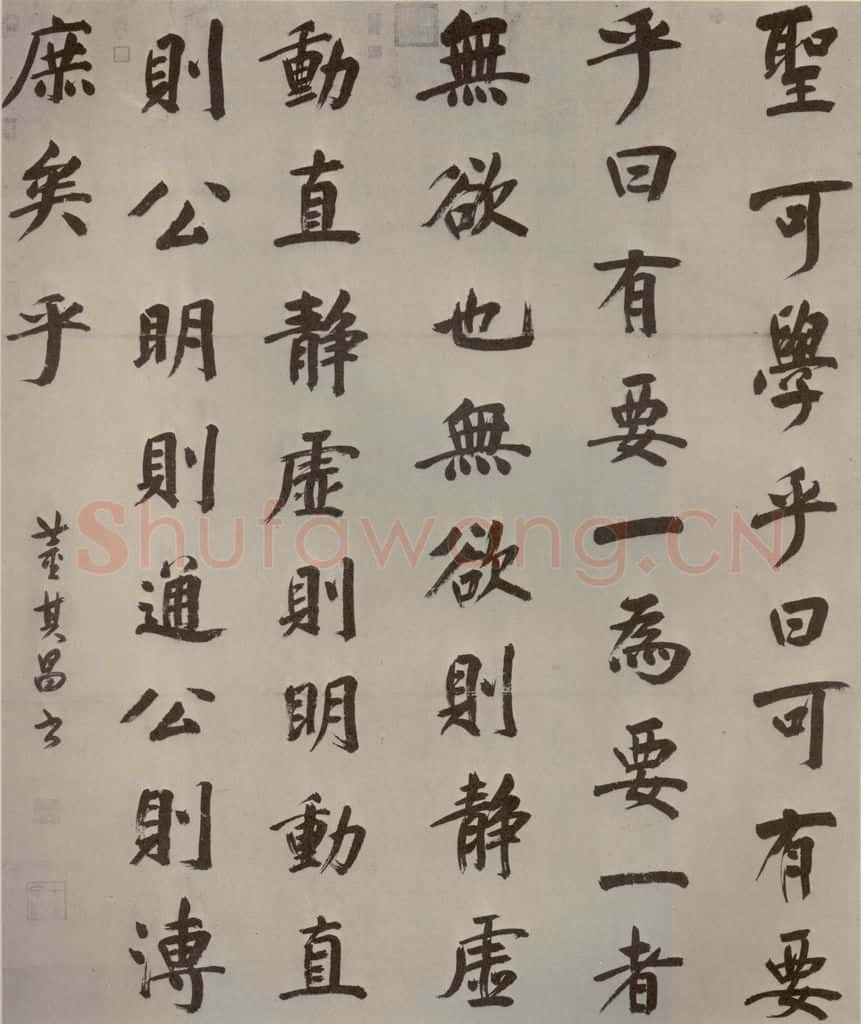 聖可學乎曰可有要
乎曰有要一為要一者
無欲也無欲則静虛
動直静虛則明動直
則公明則通公則溥
庶矣乎
董其昌書
Shufawang.CN